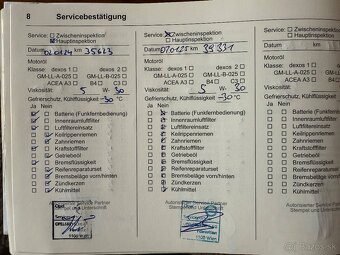 8 Servicebestätigung
Service: Zwischeninspektion
Hauptinspektion
Datum km 35623
Motoröl
Klasse: dexos 1 dexos 2
GM-LL-A-025 GM-LL-B-025
ACEA A3 B4 C3
Viskosität: 5 W- 30
Gefrierschutz, Kühlflüssigkeit -30 °C
Ja Nein
Batterie (Funkfernbedienung)
Innenraumluftfilter
Luftfiltereinsatz
Keilrippenriemen
Zahnriemen
Kraftstofffilter
Getriebeöl
Bremsflüssigkeit
Reifenreparaturset
Bremsbeläge vorn/hinten
Zündkerzen
Kühlmittel
Autorisierter Service Partner
Stempel und Unterschrift
Opel
Service: Zwischeninspektion
Hauptinspektion
Datum km
Motoröl
Klasse: dexos 1 dexos 2
GM-LL-A-025 GM-LL-B-025
ACEA A3 B4 C3
Viskosität: 5 W- 30
Gefrierschutz, Kühlflüssigkeit -30 °C
Ja Nein
Batterie (Funkfernbedienung)
Innenraumluftfilter
Luftfiltereinsatz
Keilrippenriemen
Zahnriemen
Kraftstofffilter
Getriebeöl
Bremsflüssigkeit
Reifenreparaturset
Bremsbeläge vorn/hinten
Zündkerzen
Kühlmittel
Autorisierter Service Partner
Stempel und Unterschrift
1100 Wien
Service: Zwischeninspektion
Hauptinspektion
Datum km
Motoröl
Klasse: dexos 1 dexos 2
GM-LL-A-025
ACEA A3 B4
Viskosität: W-
Gefrierschutz, Kühlflüssigkeit
Ja Nein
Batterie (Funkfernbedienung)
Innenraumluftfilter
Luftfiltereinsatz
Keilrippenriemen
Zahnriemen
Kraftstofffilter
Getriebeöl
Bremsflüssigkeit
Reifenreparaturset
Bremsbeläge vorn/hinten
Zündkerzen
Kühlmittel
Autorisierter Service Partner
Stempel und Unterschrift